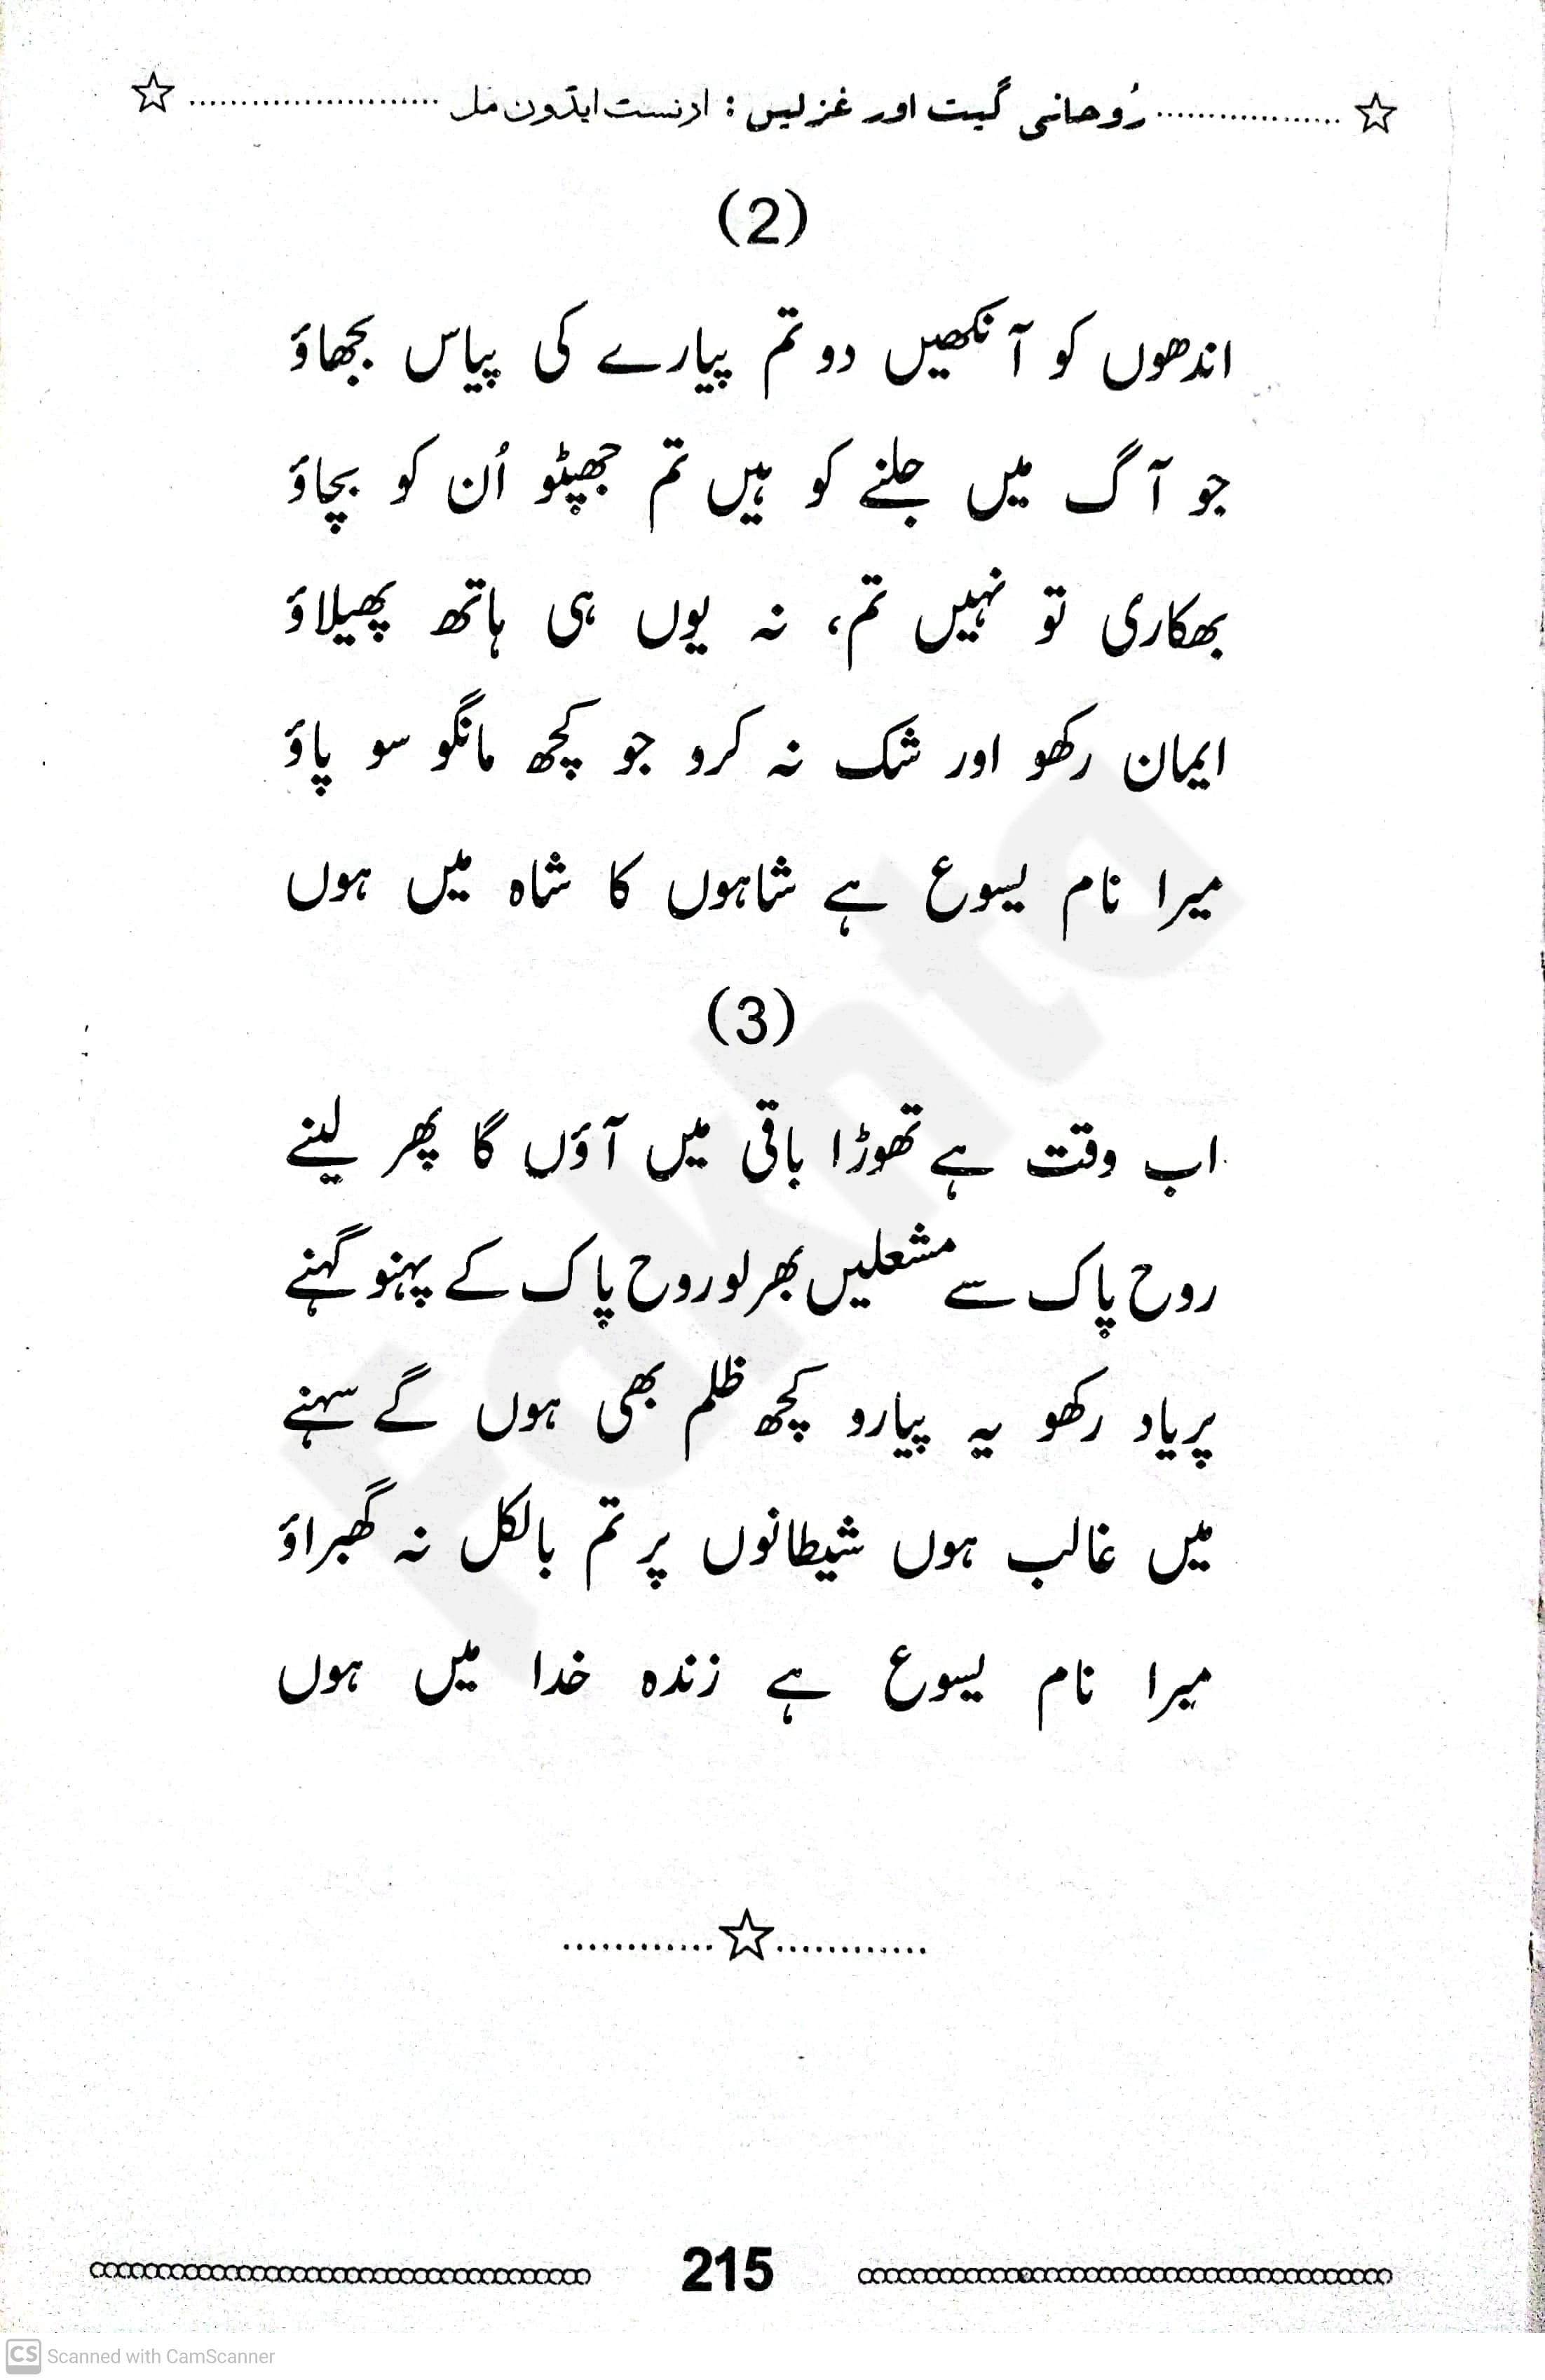 ☆ .................. رُوحانی گیت اور غزلیں : ارنسٹ ایڈون مل ......................... ☆
(2)
اندھوں کو آنکھیں دو تم پیارے کی پیاس بجھاؤ
جو آگ میں جلنے کو ہیں تم جھپٹو اُن کو بچاؤ
بھکاری تو نہیں تم، نہ یوں ہی ہاتھ پھیلاؤ
ایمان رکھو اور شک نہ کرو جو کچھ مانگو سو پاؤ
میرا نام یسوع ہے شاہوں کا شاہ میں ہوں
(3)
اب وقت ہے تھوڑا باقی میں آؤں گا پھر لینے
روح پاک سے مشعلیں بھر لو روح پاک کے پہنو گہنے
پر یاد رکھو یہ پیارو کچھ ظلم بھی ہوں گے سہنے
میں غالب ہوں شیطانوں پر تم بالکل نہ گھبراؤ
میرا نام یسوع ہے زندہ خدا میں ہوں
............☆............
215
Fakhta
CS Scanned with CamScanner